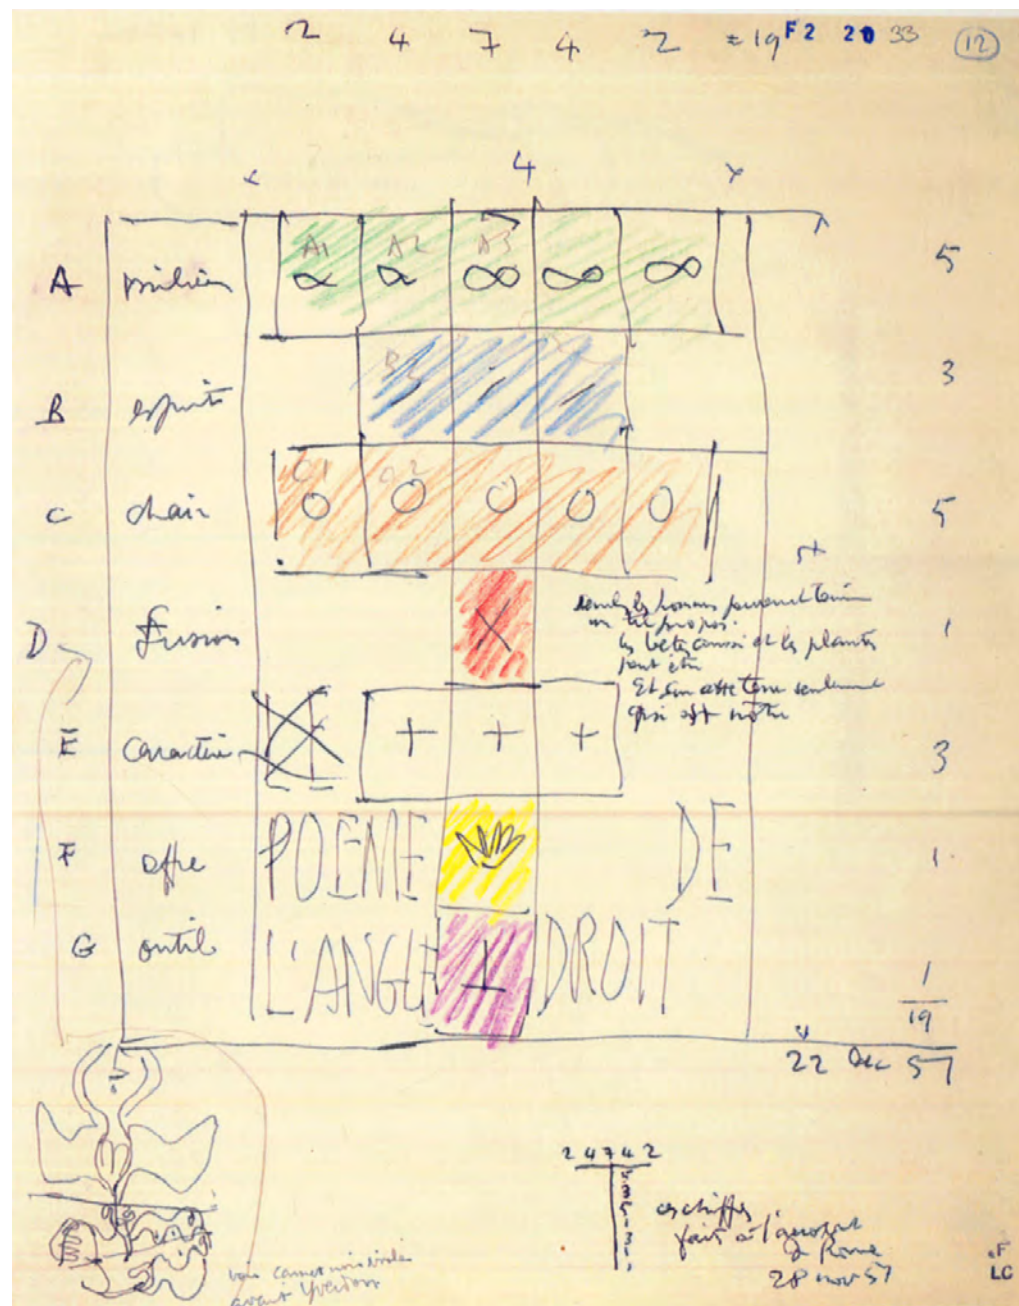 2 4 7 4 2 = 19 F2 20 33 12
4
A milieu A1 A2 A3 5
B esprit B3 3
C chair C1 C2 5
D fusion 1
les hommes peuvent tenir
un tel propos.
les bêtes aussi et les plantes
peut être
Et sur cette terre seulement
qui est nôtre
E caractère + + + 3
F offre POEME DE 1
G outil L'ANGLE DROIT 1
19
22 Dec 57
2 4 7 4 2
ces chiffres
fait à l'aéroport
de Rome
28 nov 57
avant
FLC